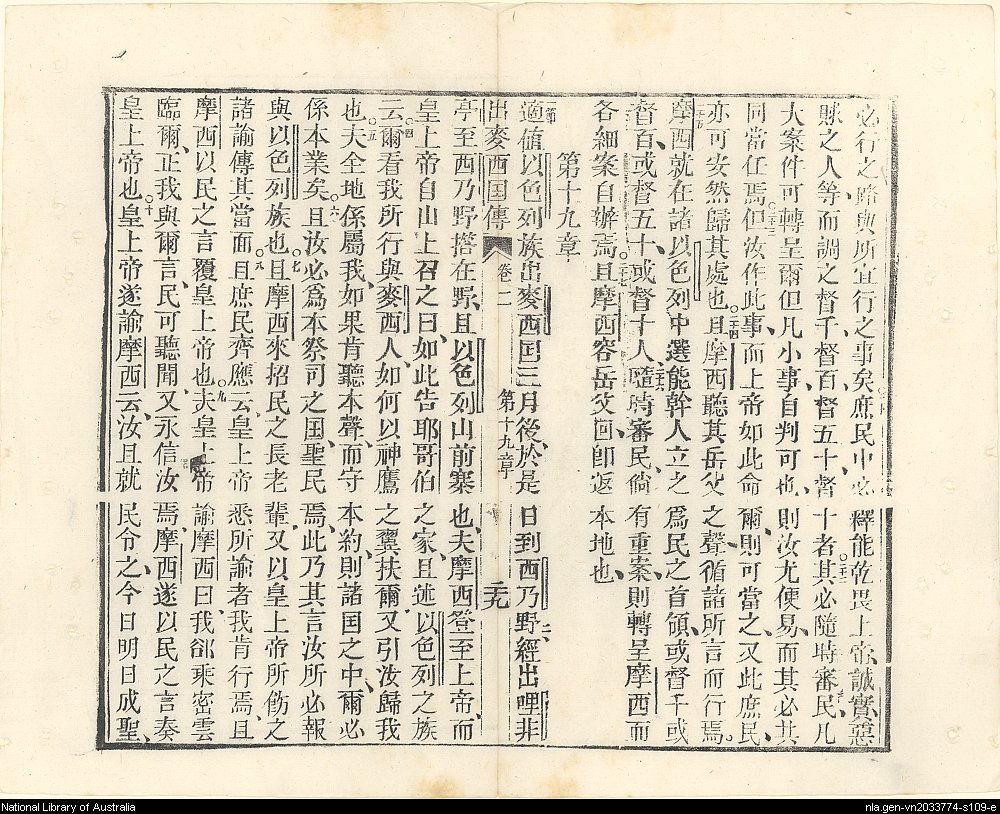 必行之路與所宜行之事矣庶民中必釋能乾畏上帝誠實惡
賕之人等而調之督千督百督五十督十者其必隨時審民凡
大案件可轉呈爾但凡小事自判可也則汝尤便易而其必其
同當任焉但汝作此事而上帝如此命爾則可當之又此庶民
亦可安然歸其處也且摩西聽其岳父之聲循諸所言而行焉
摩西就在諸以色列中選能幹人立之爲民之首領或督千或
督百或督五十或督十人隨時審民倘有重案則轉呈摩西而
各細案自辦焉且摩西容岳父回即返本地也
第十九章
適値以色列族出麥西国三月後於是日到西乃野經出哩非
出麥西国傳 卷二 第十九章 二十九
亭至西乃野搭在野且以色列山前寨也夫摩西登至上帝而
皇上帝自山上召之曰如此告耶哥伯之家且述以色列之族
云爾看我所行與麥西人如何以神鷹之翼扶爾又引汝歸我
也夫全地係屬我如果肯聽本聲而守本約則諸国之中爾必
係本業矣且汝必爲本祭司之国聖民焉此乃其言汝所必報
與以色列族也且摩西來招民之長老輩又以皇上帝所飭之
諸諭傳其當面且庶民齊應云皇上帝悉所諭者我肯行焉且
摩西以民之言覆皇上帝也夫皇上帝諭摩西曰我郤乘密雲
臨爾正我與爾言民可聽聞又永信汝焉摩西遂以民之言奏
皇上帝也皇上帝遂諭摩西云汝且就民令之今日明日成聖
National Library of Australia
nla.gen-vn2033774-s109-e